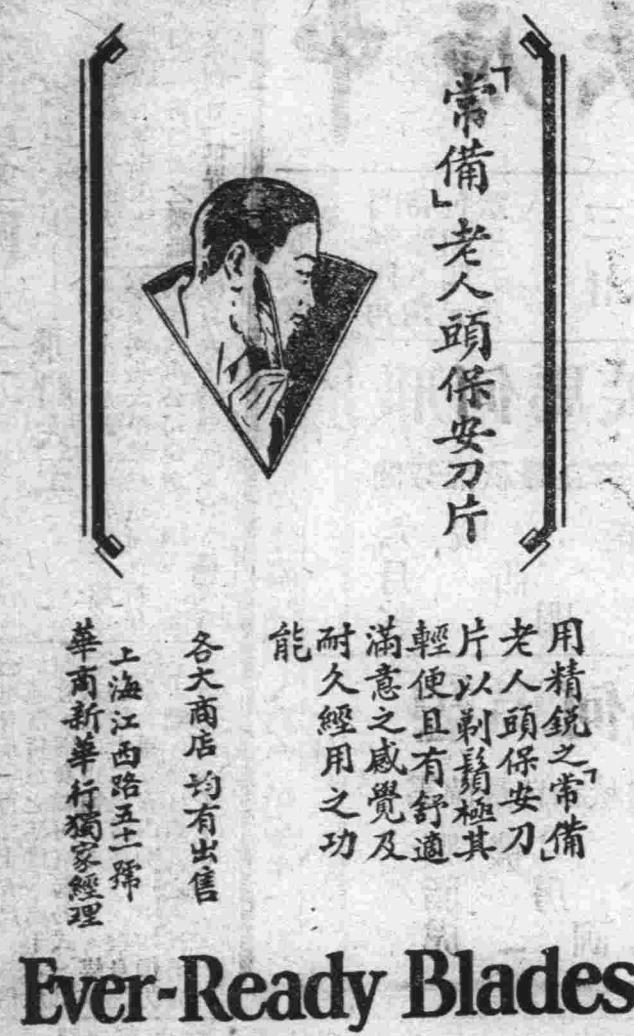 「常備」老人頭保安刀片
用精鋭之「常備」
老人頭保安刀
片以剃鬚極其
輕便且有舒適
滿意之感覺及
耐久經用之功
能
各大商店均有出售
上海江西路五十一號
華商新華行獨家經理
Ever-Ready Blades